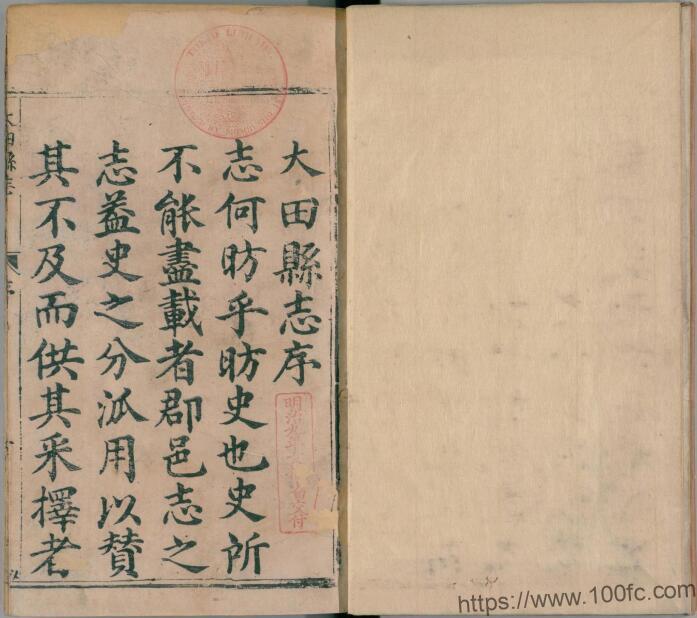 大田縣志序
志何昉乎昉史也史所
不能盡載者郡邑志之
志葢史之分派用以贊
其不及而供其采擇者
明治九年
交付
https://www.100fc.com